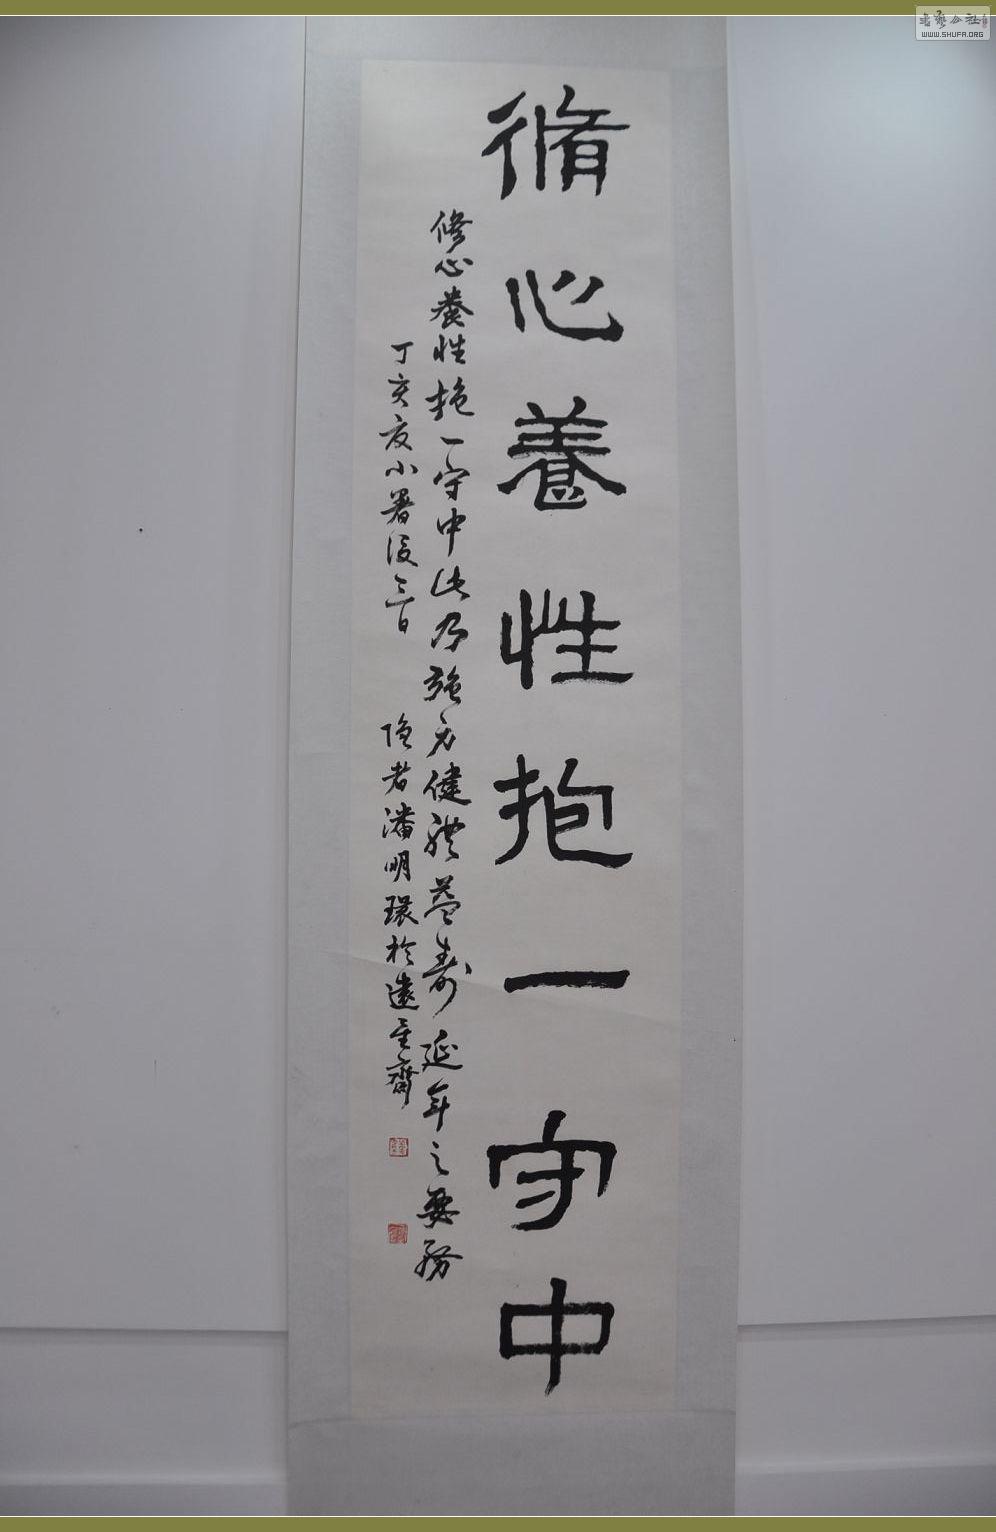 脩心養性抱一守中
修心養性抱一守中此乃強身健體益壽延年之要務
丁亥夏小暑後三日 隐者潘明環於遠星齋
書藝公社
WWW.SHUFA.ORG